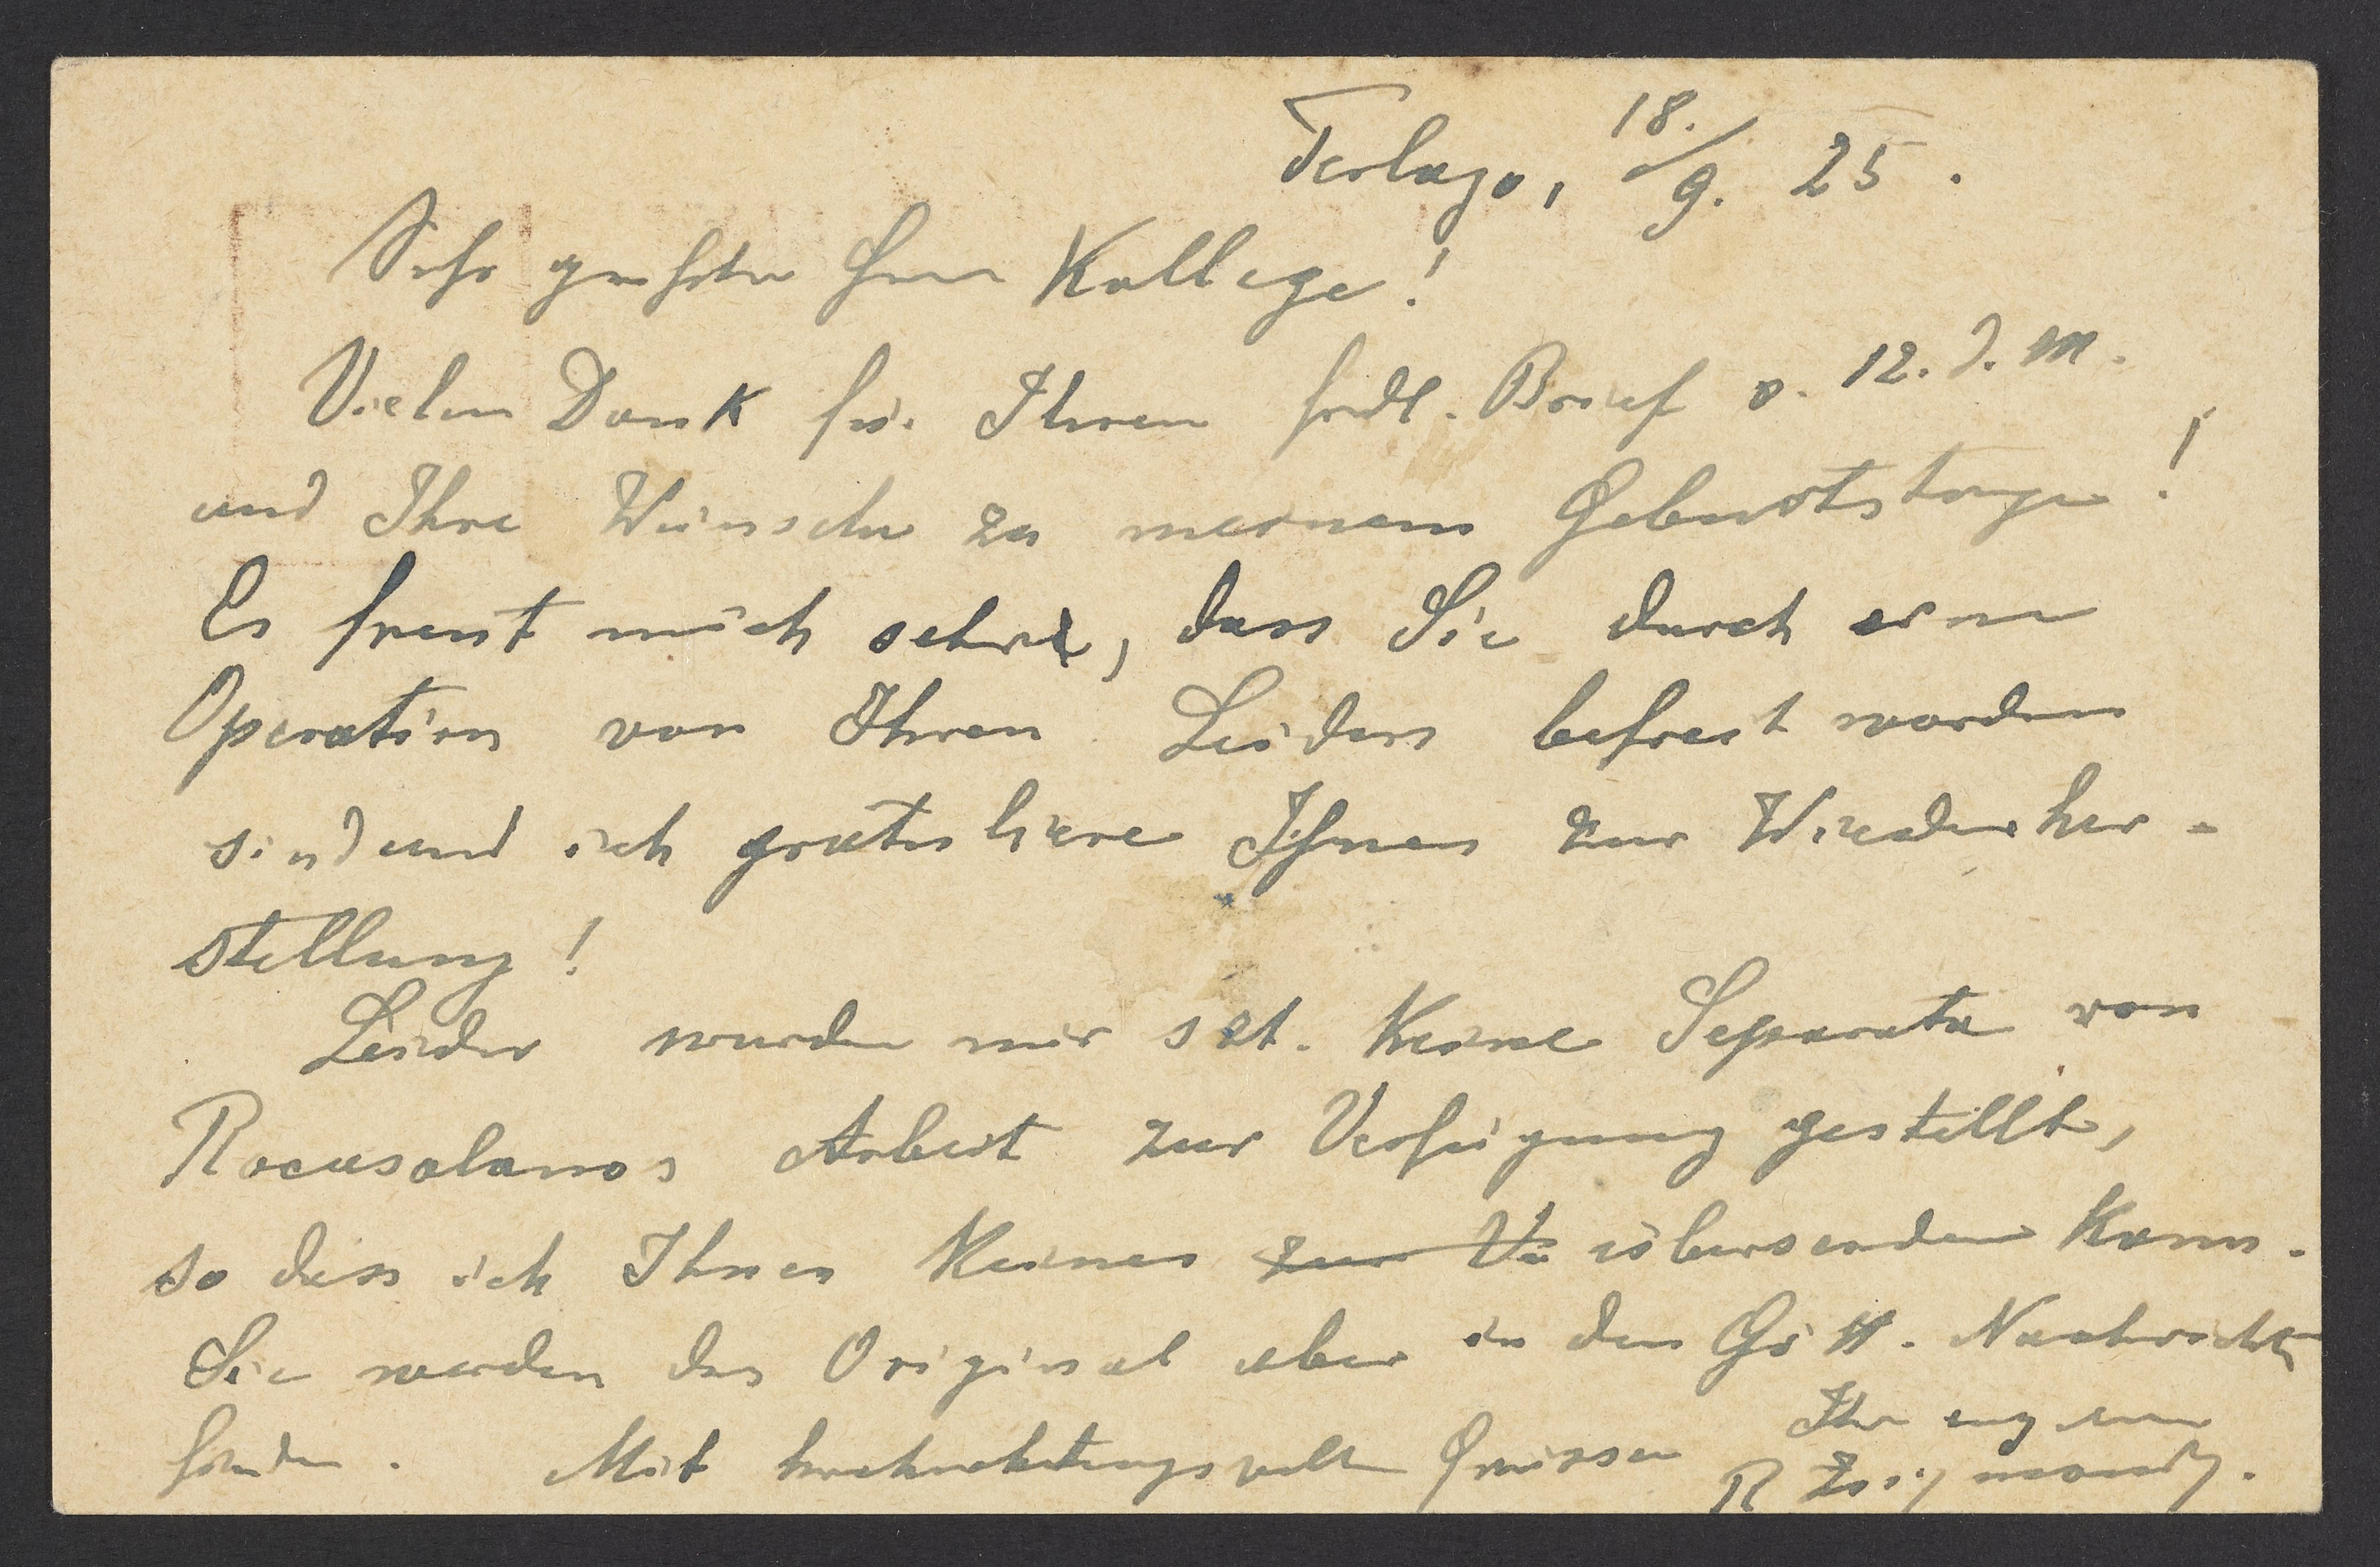 Terlago, 18./9. 25.
Sehr geehrter Herr Kollege!
Vielen Dank für Ihren frdl. Brief v. 12. d. M.
und Ihre Wünsche zu meinem Geburtstage!
Es freut mich sehr, dass Sie durch eine
Operation von Ihren Leiden befreit worden
sind und ich gratuliere Ihnen zur Wiederher-
stellung!
Leider wurden mir szt. keine Separata von
Rocasolanos Arbeit zur Verfügung gestellt,
so dass ich Ihnen keines zur Ve übersenden kann.
Sie werden das Original aber in den Gött. Nachrichten
finden. Mit hochachtungsvollen Grüssen
Ihr erg
R Zsigmondy.